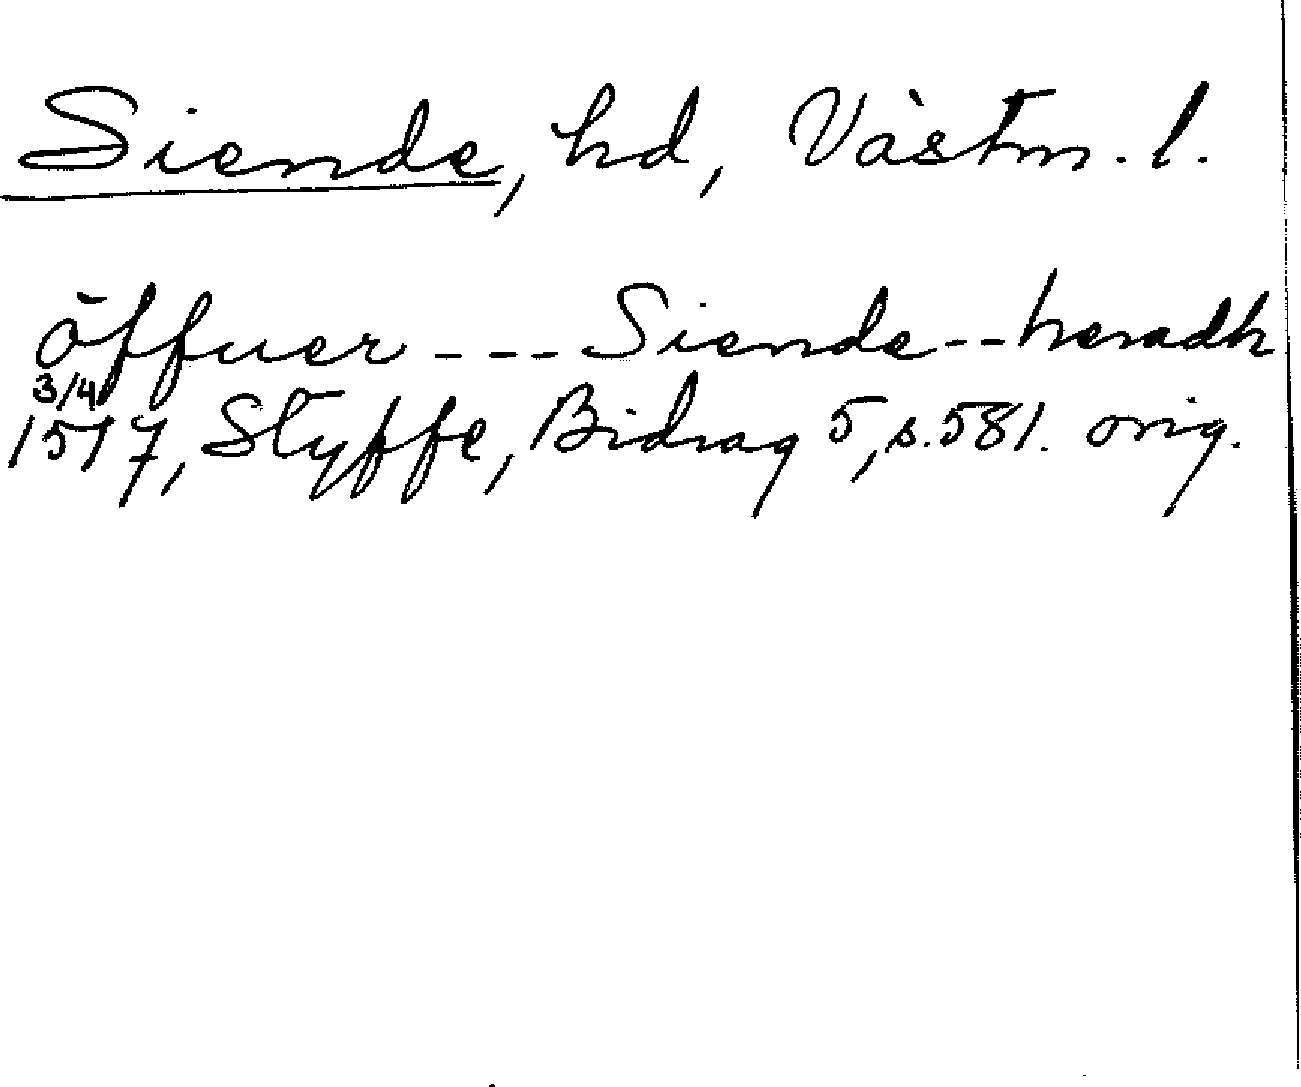 Siende, hd, Västm. l.
öffuer --- Siende -- heradh
3/4
1517, Styffe, Bidrag 5, s. 581. orig.